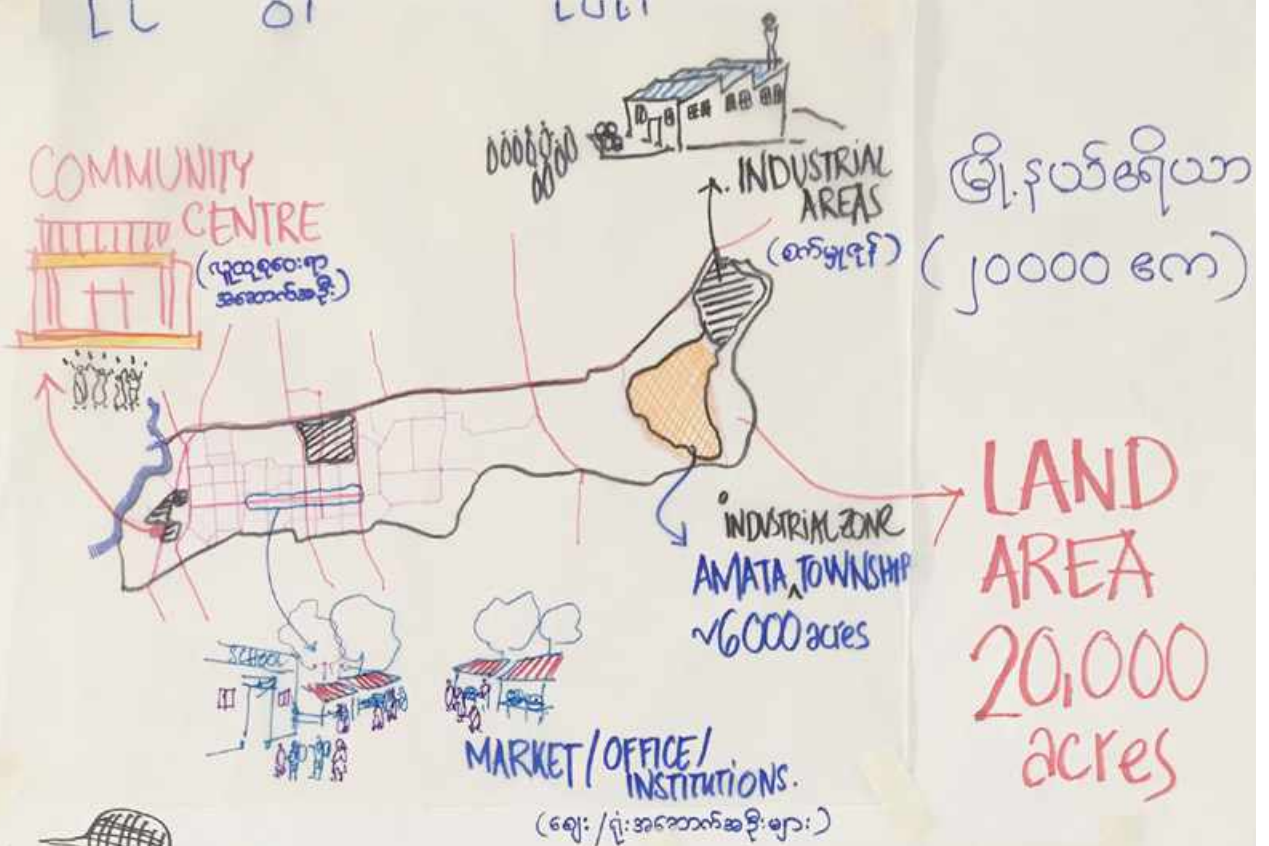 COMMUNITY
CENTRE
(လူထုစုဝေးရာ
အဆောက်အဦး)
INDUSTRIAL
AREAS
(စက်မှုဇုန်)
မြို့နယ်ဧရိယာ
(၂၀၀၀၀ ဧက)
INDUSTRIAL ZONE
AMATA TOWNSHIP
~6000 acres
LAND
AREA
20,000
acres
SCHOOL
MARKET/OFFICE/
INSTITUTIONS.
(ဈေး/ရုံးအဆောက်အဦးများ)